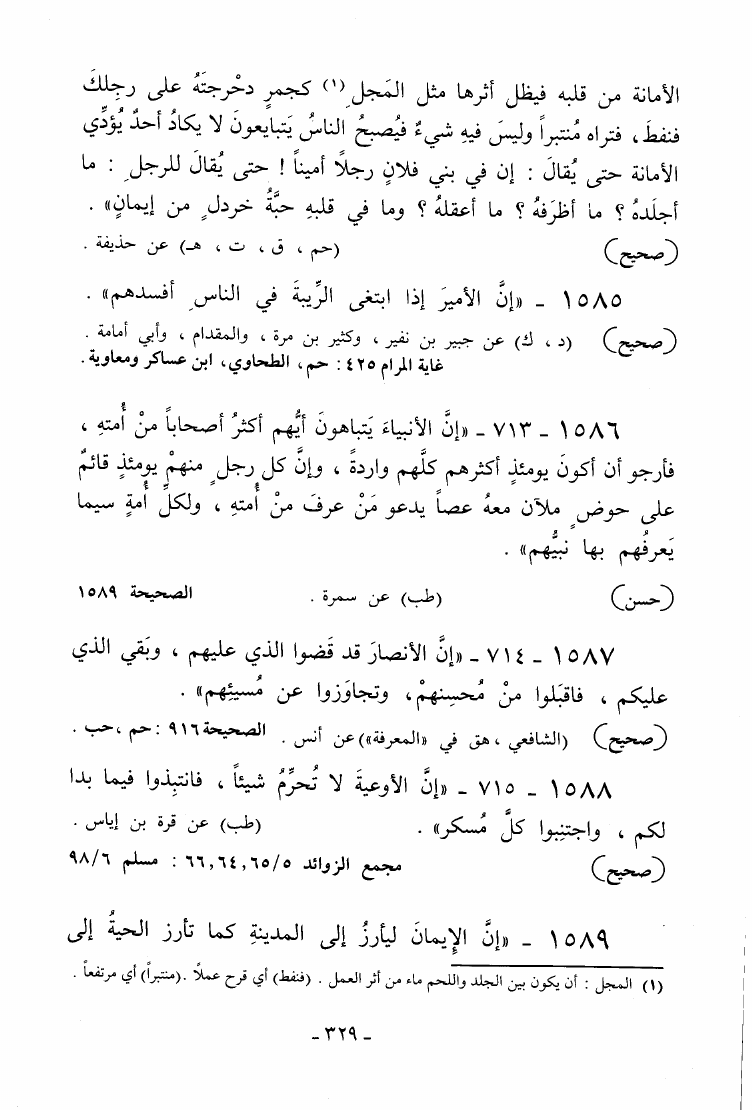 الأمانة من قلبه فيظل أثرها مثل المَجل (١) كجمرٍ دحْرجتَهُ على رجِلكَ
فنفطَ، فتراه مُنتبراً وليسَ فيهِ شيءٌ فيُصبحُ الناسُ يَتبايعونَ لا يكادُ أحدٌ يُؤدِّي
الأمانة حتى يُقالَ : إن في بني فلانٍ رجلاً أميناً ! حتى يُقالَ للرجلِ : ما
أجلَدهُ ؟ ما أظرَفهُ ؟ ما أعقلهُ ؟ وما في قلبهِ حبَّةُ خردلٍ من إيمانٍ» .
(صحيح) (حم ، ق ، ت ، هـ) عن حذيفة .
١٥٨٥ ـ «إنَّ الأميرَ إذا ابتغى الرِّيبةَ في الناسِ أفسدهم» .
(صحيح) (د ، ك) عن جبير بن نفير ، وكثير بن مرة ، والمقدام ، وأبي أمامة .
غاية المرام ٤٢٥ : حم، الطحاوي، ابن عساكر ومعاوية.
١٥٨٦ ـ ٧١٣ ـ «إنَّ الأنبياءَ يَتباهونَ أيُّهم أكثرُ أصحاباً منْ أُمتهِ ،
فأرجو أن أكونَ يومئذٍ أكثرهم كلَّهم واردةً ، وإنَّ كل رجلٍ منهمْ يومئذٍ قائمٌ
على حوضٍ ملآن معهُ عصاً يدعو مَنْ عرفَ منْ أُمتهِ ، ولكلِّ أُمةٍ سيما
يَعرفُهم بها نبيُّهم» .
(حسن) (طب) عن سمرة . الصحيحة ١٥٨٩
١٥٨٧ ـ ٧١٤ ـ «إنَّ الأنصارَ قد قَضوا الذي عليهم ، وبَقي الذي
عليكم ، فاقبَلوا منْ مُحسِنهمْ، وتجاوَزوا عن مُسيئِهم» .
(صحيح) (الشافعي ، هق في «المعرفة») عن أنس . الصحيحة ٩١٦ : حم ،حب .
١٥٨٨ ـ ٧١٥ ـ «إنَّ الأوعيةَ لا تُحرِّمُ شيئاً ، فانتبِذوا فيما بدا
لكم ، واجتنِبوا كلَّ مُسكر» . (طب) عن قرة بن إياس .
(صحيح) مجمع الزوائد ٦٦,٦٤,٦٥/٥ : مسلم ٩٨/٦
١٥٨٩ ـ «إنَّ الإِيمانَ ليأرزُ إلى المدينةِ كما تأرز الحيةُ إلى
(١) المجل : أن يكون بين الجلد واللحم ماء من أثر العمل . (فنفط) أي قرح عملاً .(منتبراً) أي مرتفعاً .
ـ ٣٢٩ ـ